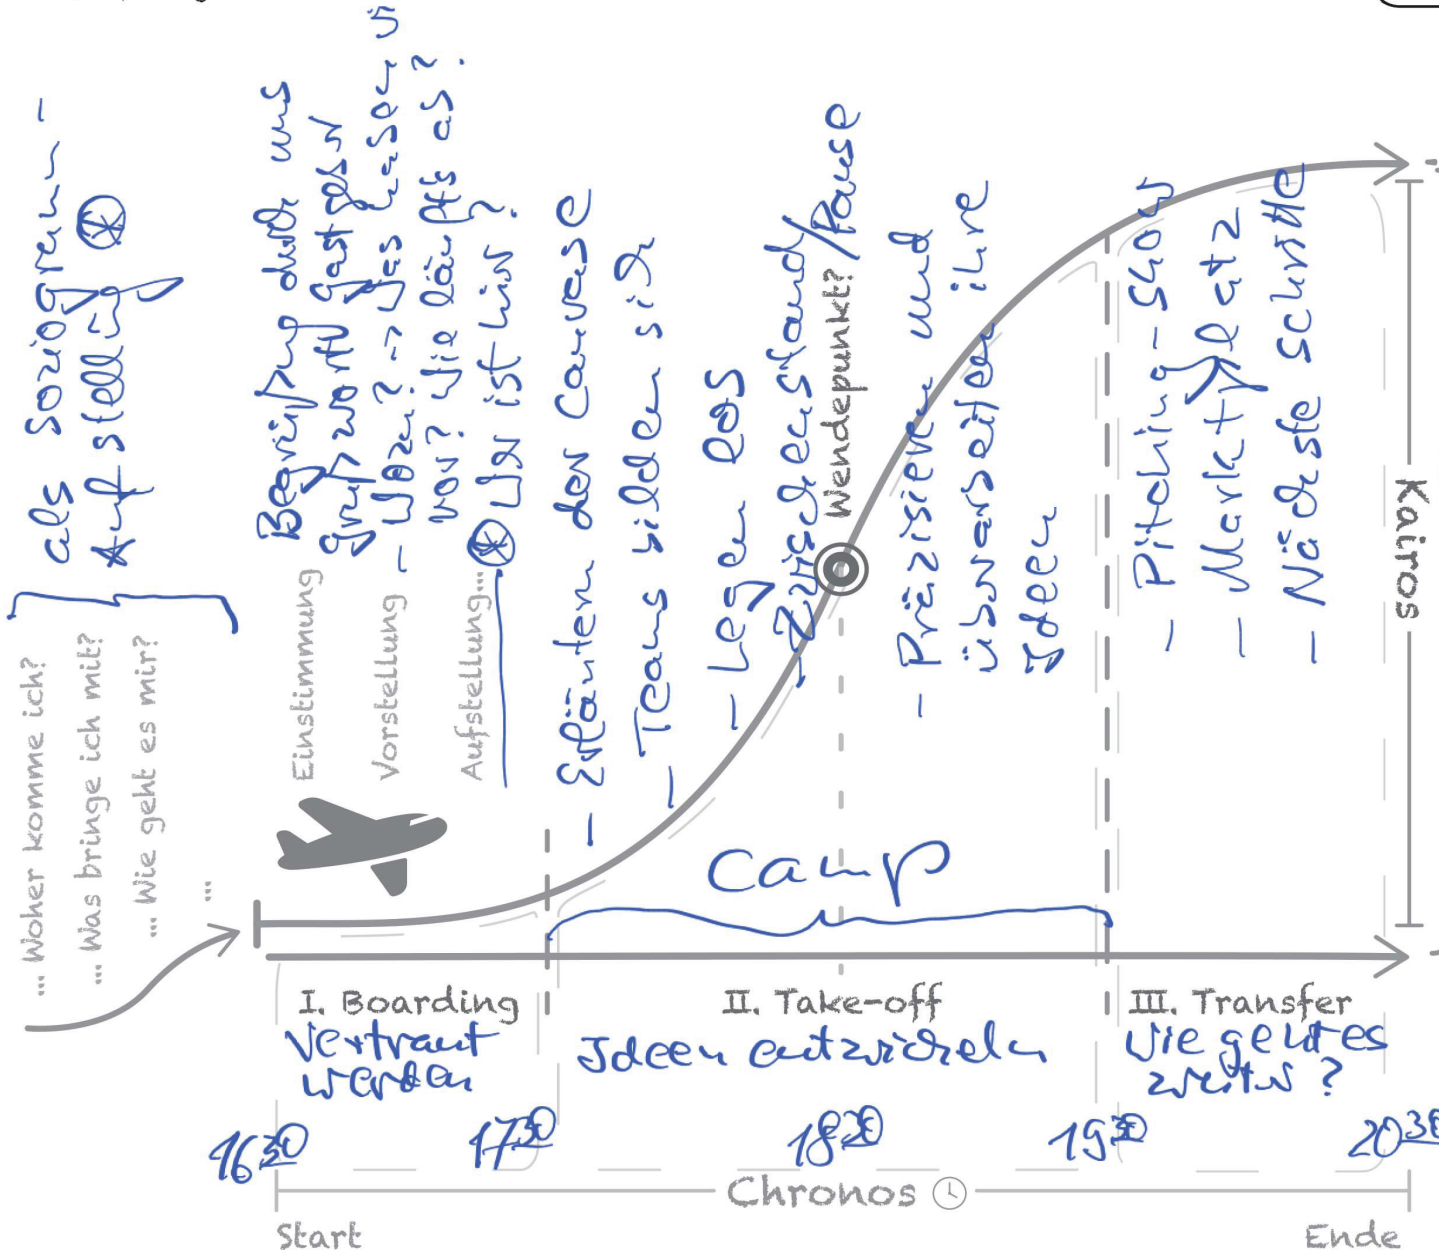 ... Woher komme ich?
... Was bringe ich mit?
... Wie geht es mir?
...
als Soziogramm -
Aufstellung
Einstimmung
Begrüßung durch uns
Grußwort Gastgeber
Vorstellung
- Wozu? -> Was haben
vor? Wie läuft's ab?
Aufstellung...
Wer ist hier?
- Erläutern der Canvase
- Teams bilden sich
- Legen los
- Zwischenstand
Wendepunkt? / Pause
- Präzisieren und
überarbeiten ihre
Ideen
- Pitching-Show
- Marktplatz
- Nächste Schritte
Kairos
Camp
I. Boarding
Vertraut
werden
II. Take-off
Ideen entwickeln
III. Transfer
Wie geht es
weiter?
16 30
17 30
18 20
19 30
20 30
Chronos
Start
Ende